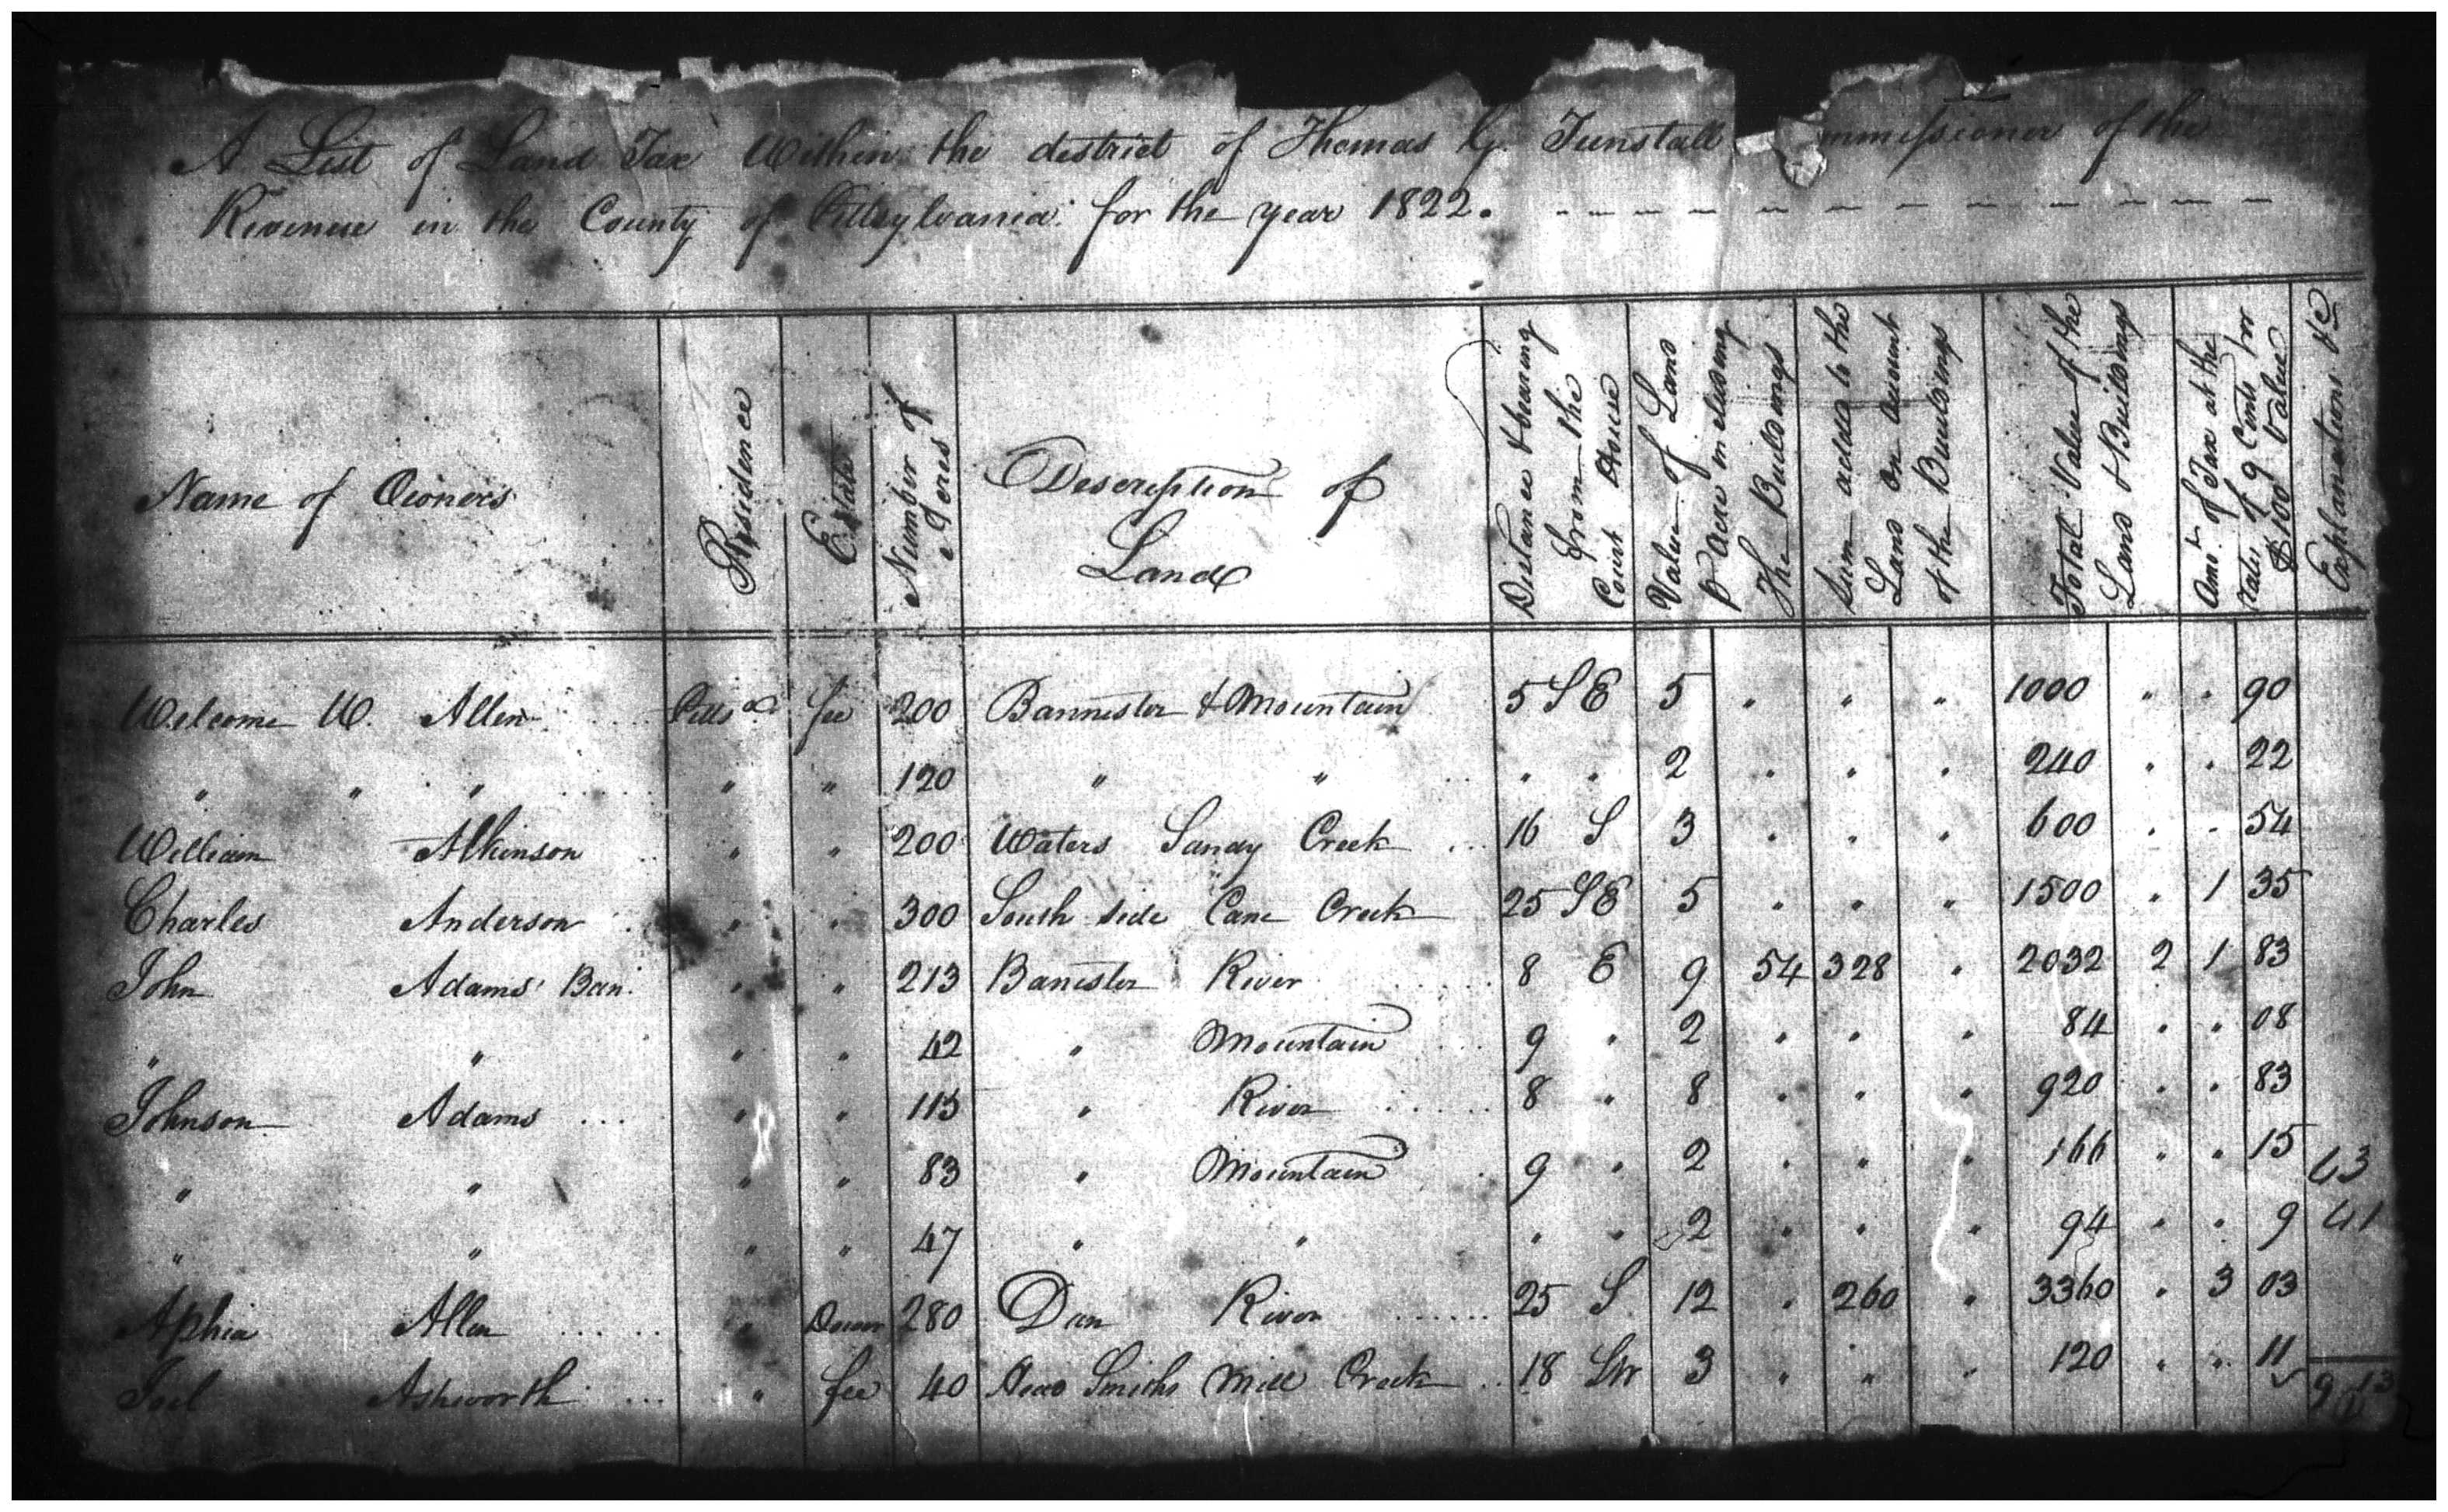 A List of Land Tax Within the district of Thomas G. Tunstall mmissioner of the
Revenue in the County of Pittsylvania for the year 1822. - - - - - - - - - - - -
Name of Owners
Residence
Estate
Number of
Acres
Description of
Land
Distance & bearing
from the
Court House
Value of Land
p Acre including
The Buildings
Sum added to the
Land on account
of the Buildings
Total Value of the
Land & Buildings
Amt. of Tax at the
rate of 9 Cents for
$100 Value
Explanations &c
Welcome W. Allen Pitts a fee 200 Bannister & Mountain 5 S E 5 " " " 1000 " " 90
" " " " " 120 " " " " 2 " " " 240 " " 22
William Atkinson " " 200 Waters Sandy Creek 16 S 3 " " " 600 " " 54
Charles Anderson " " 300 South side Cane Creek 25 S E 5 " " " 1500 " 1 35
John Adams' Ban. " " 213 Banister River 8 E 9 54 328 " 2032 2 1 83
" " " " 42 " Mountain 9 " 2 " " " 84 " " 08
Johnson Adams " " 115 " River 8 " 8 " " " 920 " " 83
" " " " 83 " Mountain 9 " 2 " " " 166 " " 15 63
" " " " 47 " " " " 2 " " " 94 " " 9 41
Aphia Allen " Dower 280 Dan River 25 S 12 " 260 " 3360 " 3 03
Joel Ashworth " fee 40 Head Smiths Mill Creek 18 SW 3 " " " 120 " " 11